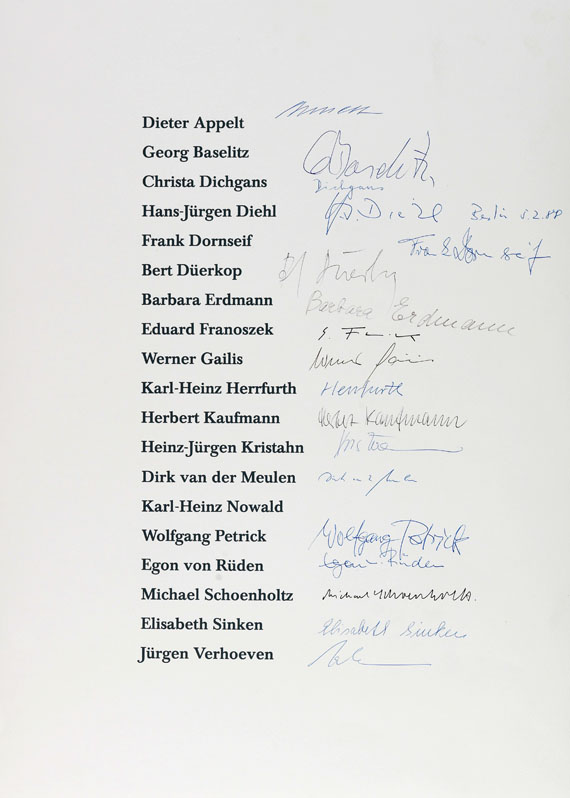 Dieter Appelt
Georg Baselitz Baselitz
Christa Dichgans Dichgans
Hans-Jürgen Diehl H.J. Diehl Berlin 5.2.88
Frank Dornseif Frank Dornseif
Bert Düerkop
Barbara Erdmann Barbara Erdmann
Eduard Franoszek
Werner Gailis
Karl-Heinz Herrfurth Herrfurth
Herbert Kaufmann Herbert Kaufmann
Heinz-Jürgen Kristahn
Dirk van der Meulen
Karl-Heinz Nowald
Wolfgang Petrick Wolfgang Petrick
Egon von Rüden Egon v. Rüden
Michael Schoenholtz Michael Schoenholtz.
Elisabeth Sinken Elisabeth Sinken
Jürgen Verhoeven